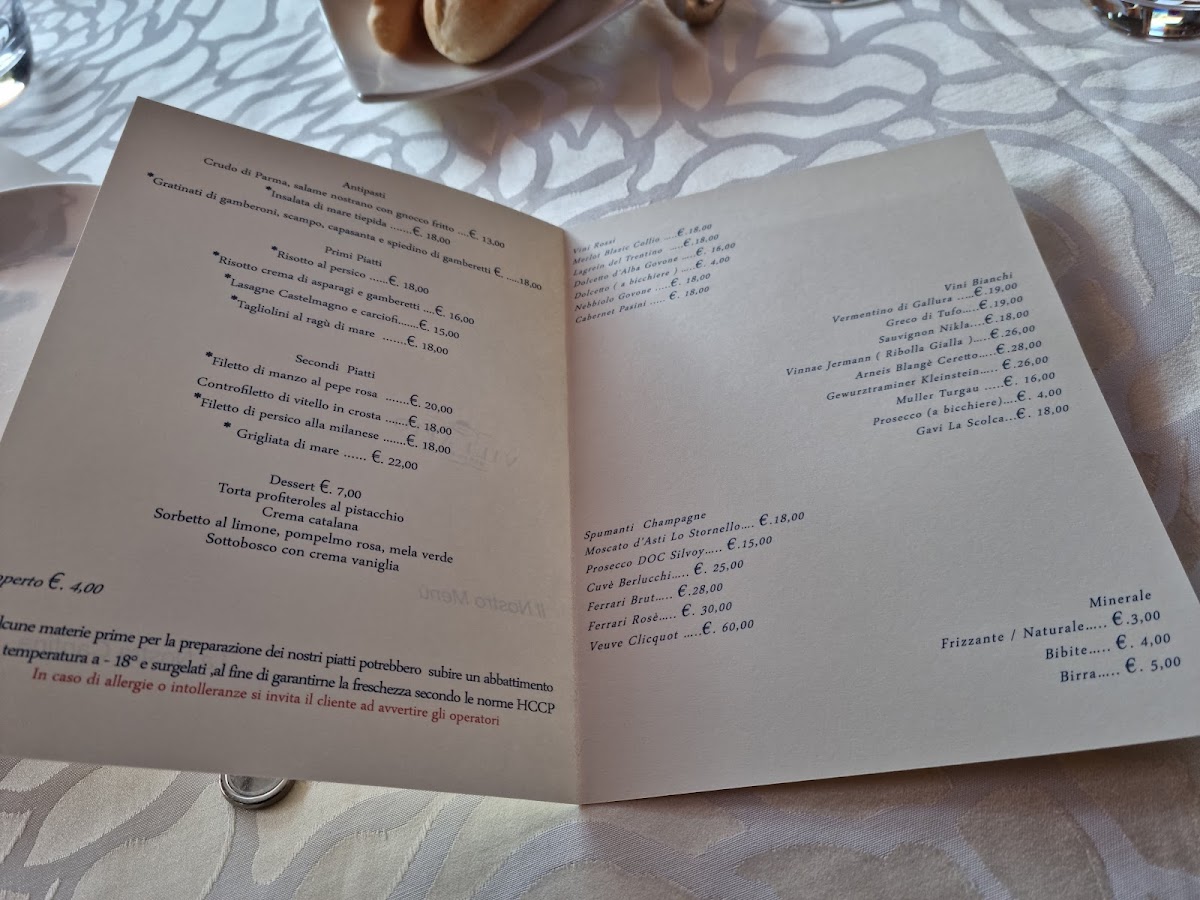 Antipasti
Crudo di Parma, salame nostrano con gnocco fritto ....€. 13,00
*Insalata di mare tiepida .......€. 18,00
*Gratinati di gamberoni, scampo, capasanta e spiedino di gamberetti €. .....18,00
Primi Piatti
*Risotto al persico .....€. 18,00
*Risotto crema di asparagi e gamberetti ....€. 16,00
*Lasagne Castelmagno e carciofi.......€. 15,00
*Tagliolini al ragù di mare .......€. 18,00
Secondi Piatti
*Filetto di manzo al pepe rosa .......€. 20,00
Controfiletto di vitello in crosta ......€. 18,00
*Filetto di persico alla milanese .......€. 18,00
* Grigliata di mare ...... €. 22,00
Dessert €. 7,00
Torta profiteroles al pistacchio
Crema catalana
Sorbetto al limone, pompelmo rosa, mela verde
Sottobosco con crema vaniglia
operto €. 4,00
lcune materie prime per la preparazione dei nostri piatti potrebbero subire un abbattimento
temperatura a - 18° e surgelati ,al fine di garantirne la freschezza secondo le norme HCCP
In caso di allergie o intolleranze si invita il cliente ad avvertire gli operatori
Vini Rossi
Merlot Blazic Collio ....€.18,00
Lagrein del Trentino ....€.18,00
Dolcetto d'Alba Govone ....€. 16,00
Dolcetto ( a bicchiere ) ....€. 4,00
Nebbiolo Govone ....€. 18,00
Cabernet Pasini ..... €. 18,00
Vini Bianchi
Vermentino di Gallura .....€.19,00
Greco di Tufo.....€.19,00
Sauvignon Nikla....€.18,00
Vinnae Jermann ( Ribolla Gialla )....€.26,00
Arneis Blangè Ceretto....€.28,00
Gewurztraminer Kleinstein.....€.26,00
Muller Turgau .....€. 16,00
Prosecco (a bicchiere)....€. 4,00
Gavi La Scolca...€. 18,00
Spumanti Champagne
Moscato d'Asti Lo Stornello.... €.18,00
Prosecco DOC Silvoy..... €.15,00
Cuvè Berlucchi..... €. 25,00
Ferrari Brut..... €.28,00
Ferrari Rosè..... €. 30,00
Veuve Clicquot .....€. 60,00
Minerale
Frizzante / Naturale..... €.3,00
Bibite..... €. 4,00
Birra..... €. 5,00